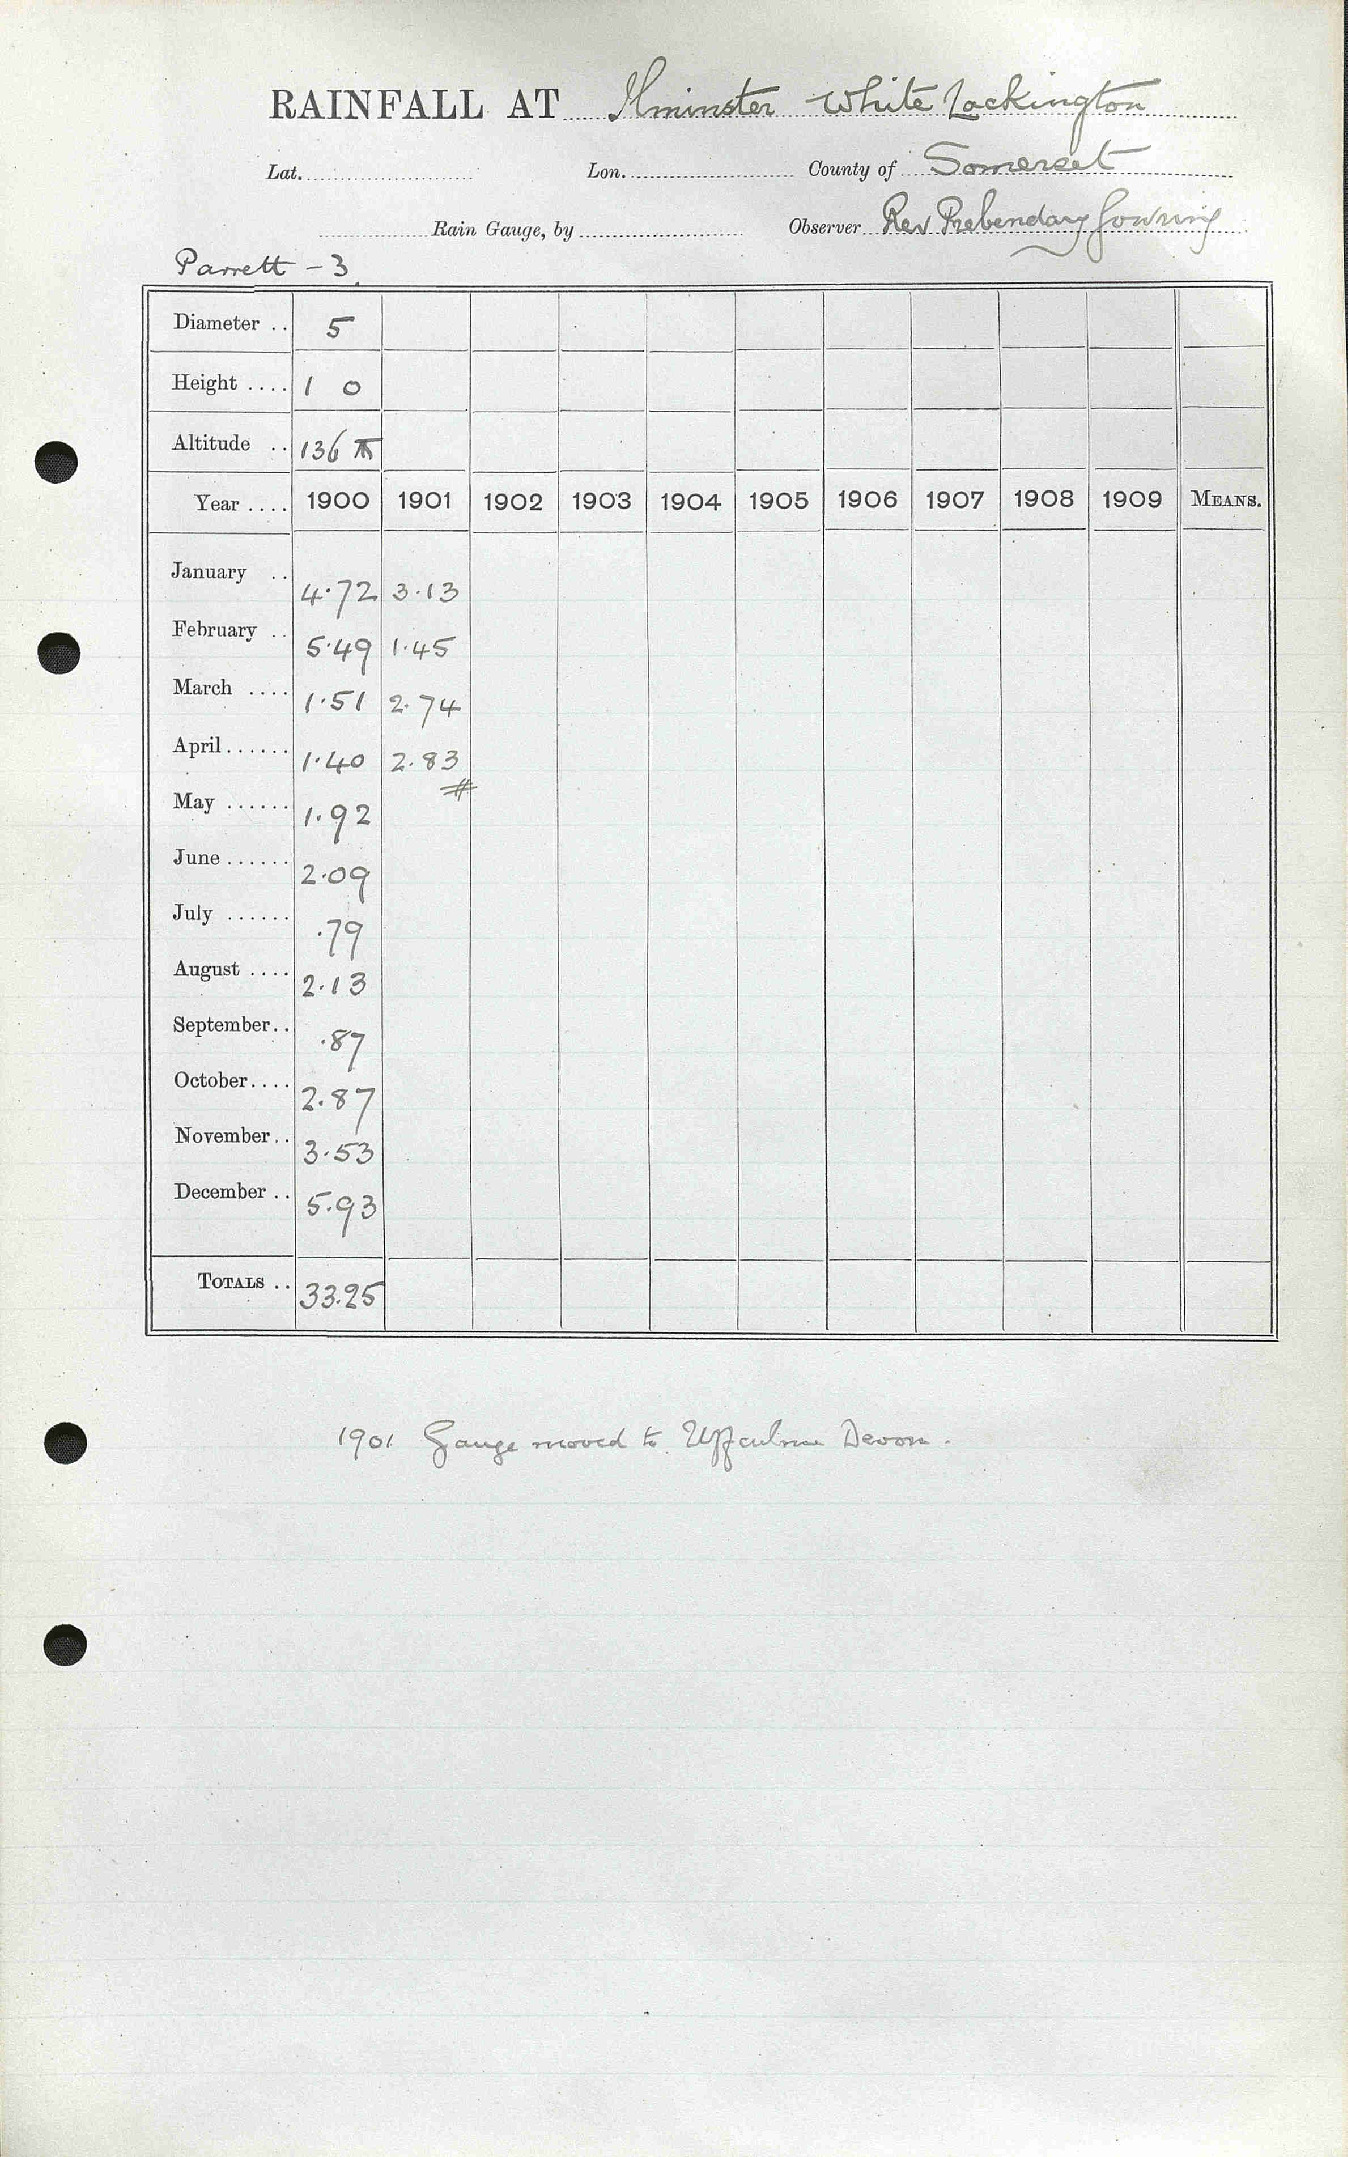 RAINFALL AT Ilminster White Lackington
Lat. Lon. County of Somerset
Rain Gauge, by Observer Rev Prebendary Gowring
Parrett - 3
Diameter .. 5
Height .... 1 0
Altitude .. 136
Year .... 1900 1901 1902 1903 1904 1905 1906 1907 1908 1909 MEANS.
January .. 4.72 3.13
February .. 5.49 1.45
March .... 1.51 2.74
April...... 1.40 2.83
#
May ...... 1.92
June ...... 2.09
July ...... .79
August .... 2.13
September.. .87
October.... 2.87
November.. 3.53
December .. 5.93
TOTALS .. 33.25
1901 Gauge moved to Uffculme Devon.